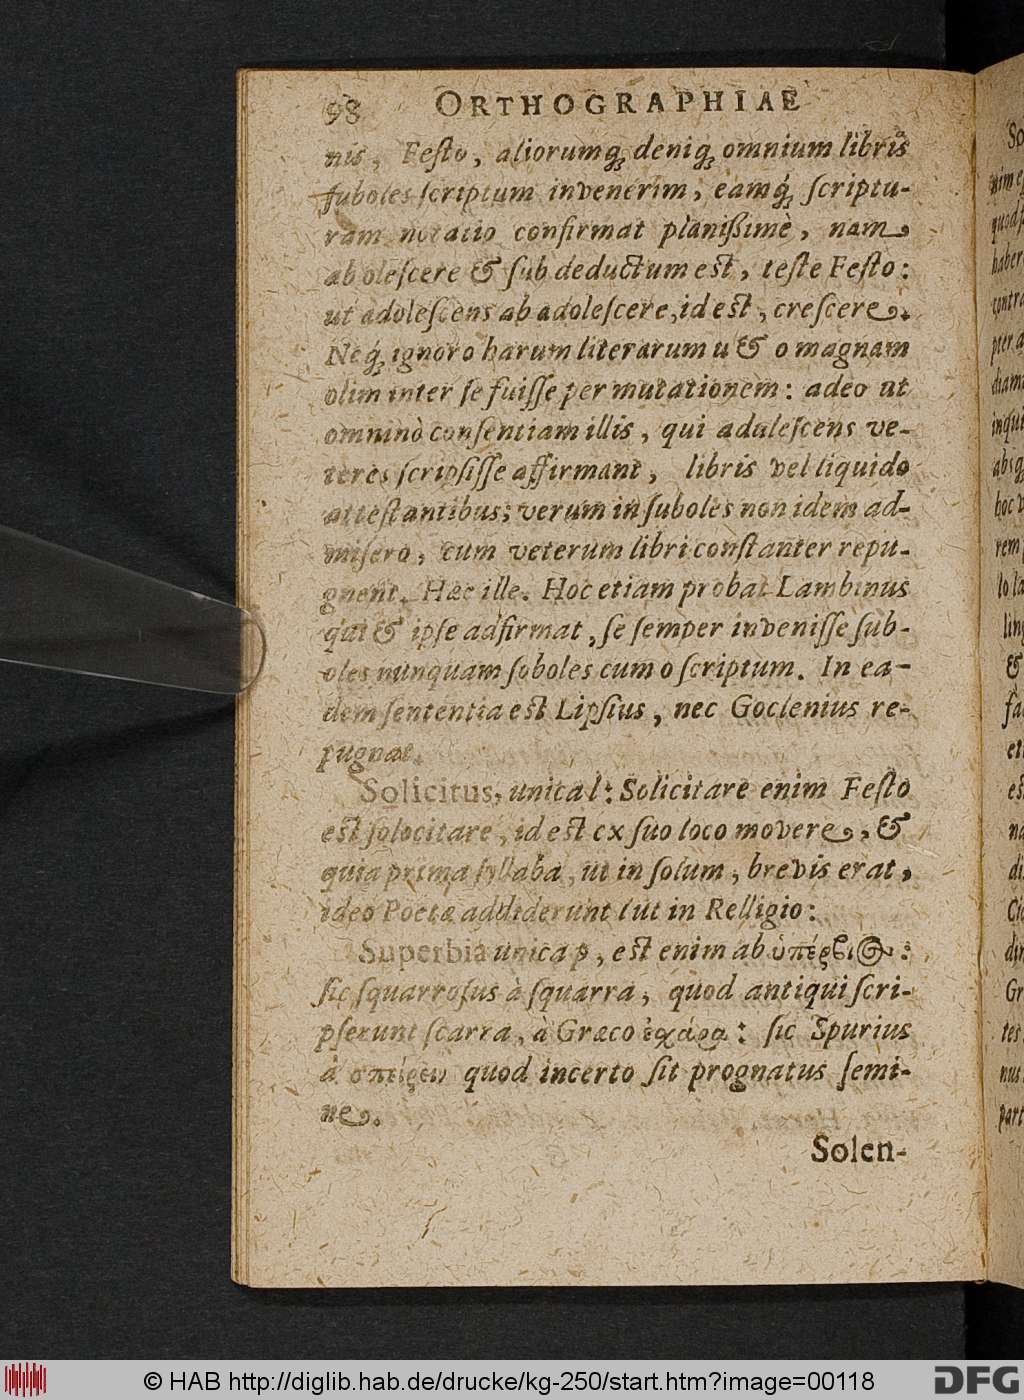 98 ORTHOGRAPHIAE
nis, Festo, aliorumq́; deniq́; omnium libris
suboles scriptum invenerim, eamq́; scriptu-
ram notatio confirmat planißimè, nam
ab olescere & sub deductum est, teste Festo:
ut adolescens ab adolescere, id est, crescere.
Neq́; ignoro harum literarum u & o magnam
olim inter se fuisse permutationem: adeo ut
omninò consentiam illis, qui adulescens ve-
teres scripsisse affirmant, libris vel liquido
attestantibus; verum in suboles non idem ad-
misero, cum veterum libri constanter repu-
gnent. Hæc ille. Hoc etiam probat Lambinus
qui & ipse adfirmat, se semper invenisse sub-
oles nunquam soboles cum o scriptum. In ea-
dem sententia est Lipsius, nec Goclenius re-
pugnat.
Solicitus, unica l: Solicitare enim Festo
est solocitare, id est ex suo loco movere, &
quia prima syllaba, ut in solum, brevis erat,
ideo Poetæ addiderunt l ut in Relligio:
Superbia unica p, est enim ab ὑπέρβιος:
sic squarrosus à squarra, quod antiqui scri-
pserunt scarra, à Græco ἐχάρα: sic Spurius
à σπείρειν quod incerto sit prognatus semi-
ne.
Solen-
© HAB http://diglib.hab.de/drucke/kg-250/start.htm?image=00118
DFG